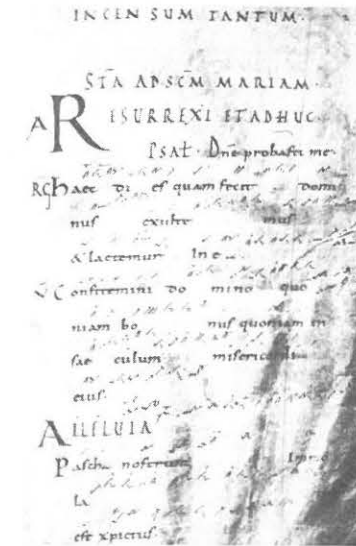 INCENSUM TANTUM.
STA AD SCM MARIAM.
A RESURREXI ET ADHUC.
PSAL. Dne probasti me.
RG haec di es quam fecit domi
nus exulte mus
& laetemur In e
V Confitemini do mino quo
niam bo nus quoniam in
sae culum misericordi
eius.
ALLELUIA
Pascha nostrum Immo
la
est xpictus.